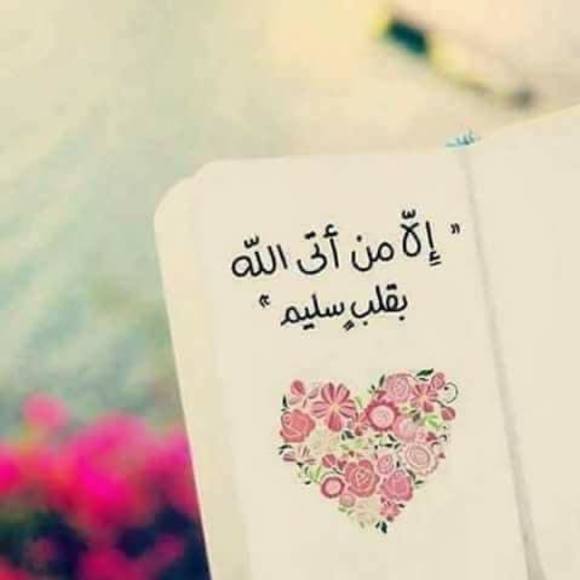 " إِلّا من أتى اللّه
بقلبٍ سليم "